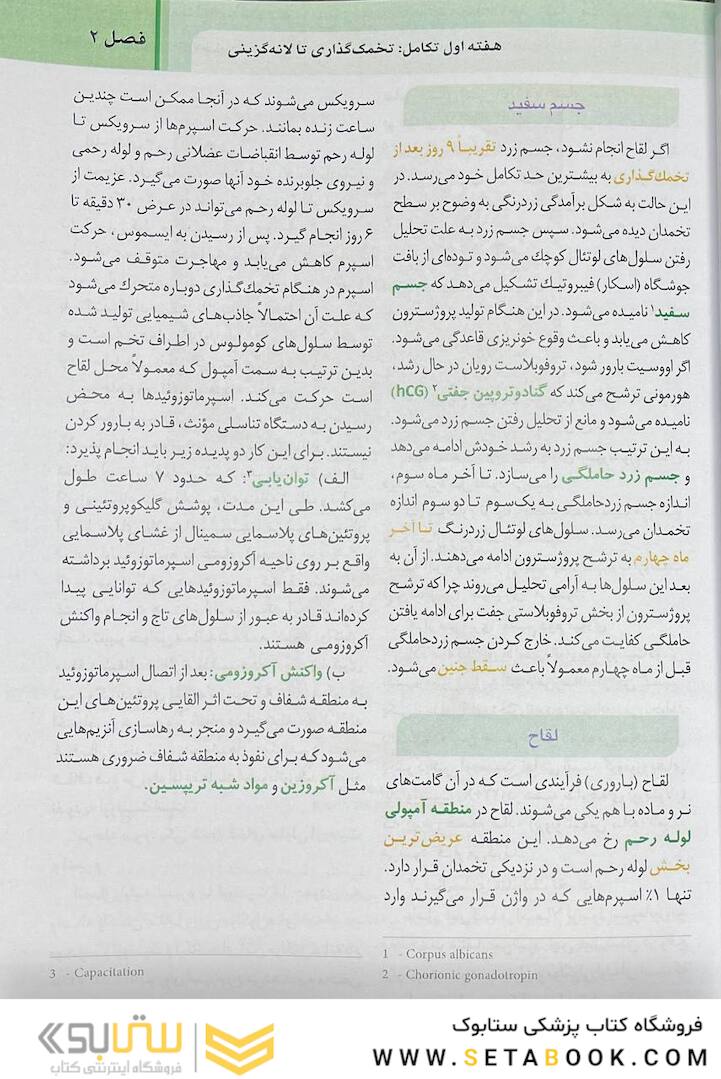 فصل ۲
هفته اول تکامل: تخمک‌گذاری تا لانه‌گزینی
جسم سفید
اگر لقاح انجام نشود، جسم زرد تقریباً ۹ روز بعد از
تخمك‌گذاری به بیشترین حد تکامل خود می‌رسد. در
این حالت به شکل برآمدگی زردرنگی به وضوح بر سطح
تخمدان دیده می‌شود. سپس جسم زرد به علت تحلیل
رفتن سلول‌های لوتئال کوچك می‌شود و توده‌ای از بافت
جوشگاه (اسکار) فیبروتیك تشکیل می‌دهد که جسم
سفید۱ نامیده می‌شود. در این هنگام تولید پروژسترون
کاهش می‌یابد و باعث وقوع خونریزی قاعدگی می‌شود.
اگر اووسیت بارور شود، تروفوبلاست رویان در حال رشد،
هورمونی ترشح می‌کند که گنادوتروپین جفتی۲ (hCG)
نامیده می‌شود و مانع از تحلیل رفتن جسم زرد می‌شود.
به این ترتیب جسم زرد به رشد خودش ادامه می‌دهد
و جسم زرد حاملگی را می‌سازد. تا آخر ماه سوم،
اندازه جسم زردحاملگی به یک‌سوم تا دو سوم اندازه
تخمدان می‌رسد. سلول‌های لوتئال زردرنگ تا آخر
ماه چهارم به ترشح پروژسترون ادامه می‌دهند. از آن به
بعد این سلول‌ها به آرامی تحلیل می‌روند چرا که ترشح
پروژسترون از بخش تروفوبلاستی جفت برای ادامه یافتن
حاملگی کفایت می‌کند. خارج کردن جسم زردحاملگی
قبل از ماه چهارم معمولاً باعث سقط جنین می‌شود.
لقاح
لقاح (باروری) فرآیندی است که در آن گامت‌های
نر و ماده با هم یکی می‌شوند. لقاح در منطقه آمپولی
لوله رحم رخ می‌دهد. این منطقه عریض‌ترین
بخش لوله رحم است و در نزدیکی تخمدان قرار دارد.
تنها ۱٪ اسپرم‌هایی که در واژن قرار می‌گیرند وارد
1 - Corpus albicans
2 - Chorionic gonadotropin
سرویکس می‌شوند که در آنجا ممکن است چندین
ساعت زنده بمانند. حرکت اسپرم‌ها از سرویکس تا
لوله رحم توسط انقباضات عضلانی رحم و لوله رحمی
و نیروی جلوبرنده خود آنها صورت می‌گیرد. عزیمت از
سرویکس تا لوله رحم می‌تواند در عرض ۳۰ دقیقه تا
۶ روز انجام گیرد. پس از رسیدن به ایسموس، حرکت
اسپرم کاهش می‌یابد و مهاجرت متوقف می‌شود.
اسپرم در هنگام تخمك‌گذاری دوباره متحرك می‌شود
که علت آن احتمالاً جاذب‌های شیمیایی تولید شده
توسط سلول‌های کومولوس در اطراف تخم است و
بدین ترتیب به سمت آمپول که معمولاً محل لقاح
است حرکت می‌کند. اسپرماتوزوئیدها به محض
رسیدن به دستگاه تناسلی مؤنث، قادر به بارور کردن
نیستند. برای این کار دو پدیده زیر باید انجام پذیرد:
الف) توان‌یابی۳: که حدود ۷ ساعت طول
می‌کشد. طی این مدت، پوشش گلیکوپروتئینی و
پروتئین‌های پلاسمایی سمینال از غشای پلاسمایی
واقع بر روی ناحیه آکروزومی اسپرماتوزوئید برداشته
می‌شوند. فقط اسپرماتوزوئیدهایی که توانایی پیدا
کرده‌اند قادر به عبور از سلول‌های تاج و انجام واکنش
آکروزومی هستند.
ب) واکنش آکروزومی: بعد از اتصال اسپرماتوزوئید
به منطقه شفاف و تحت اثر القایی پروتئین‌های این
منطقه صورت می‌گیرد و منجر به رهاسازی آنزیم‌هایی
می‌شود که برای نفوذ به منطقه شفاف ضروری هستند
مثل آکروزین و مواد شبه تریپسین.
3 - Capacitation
فروشگاه کتاب پزشکی ستابوک
WWW.SETABOOK.COM
ستابوک
فروشگاه اینترنتی کتاب